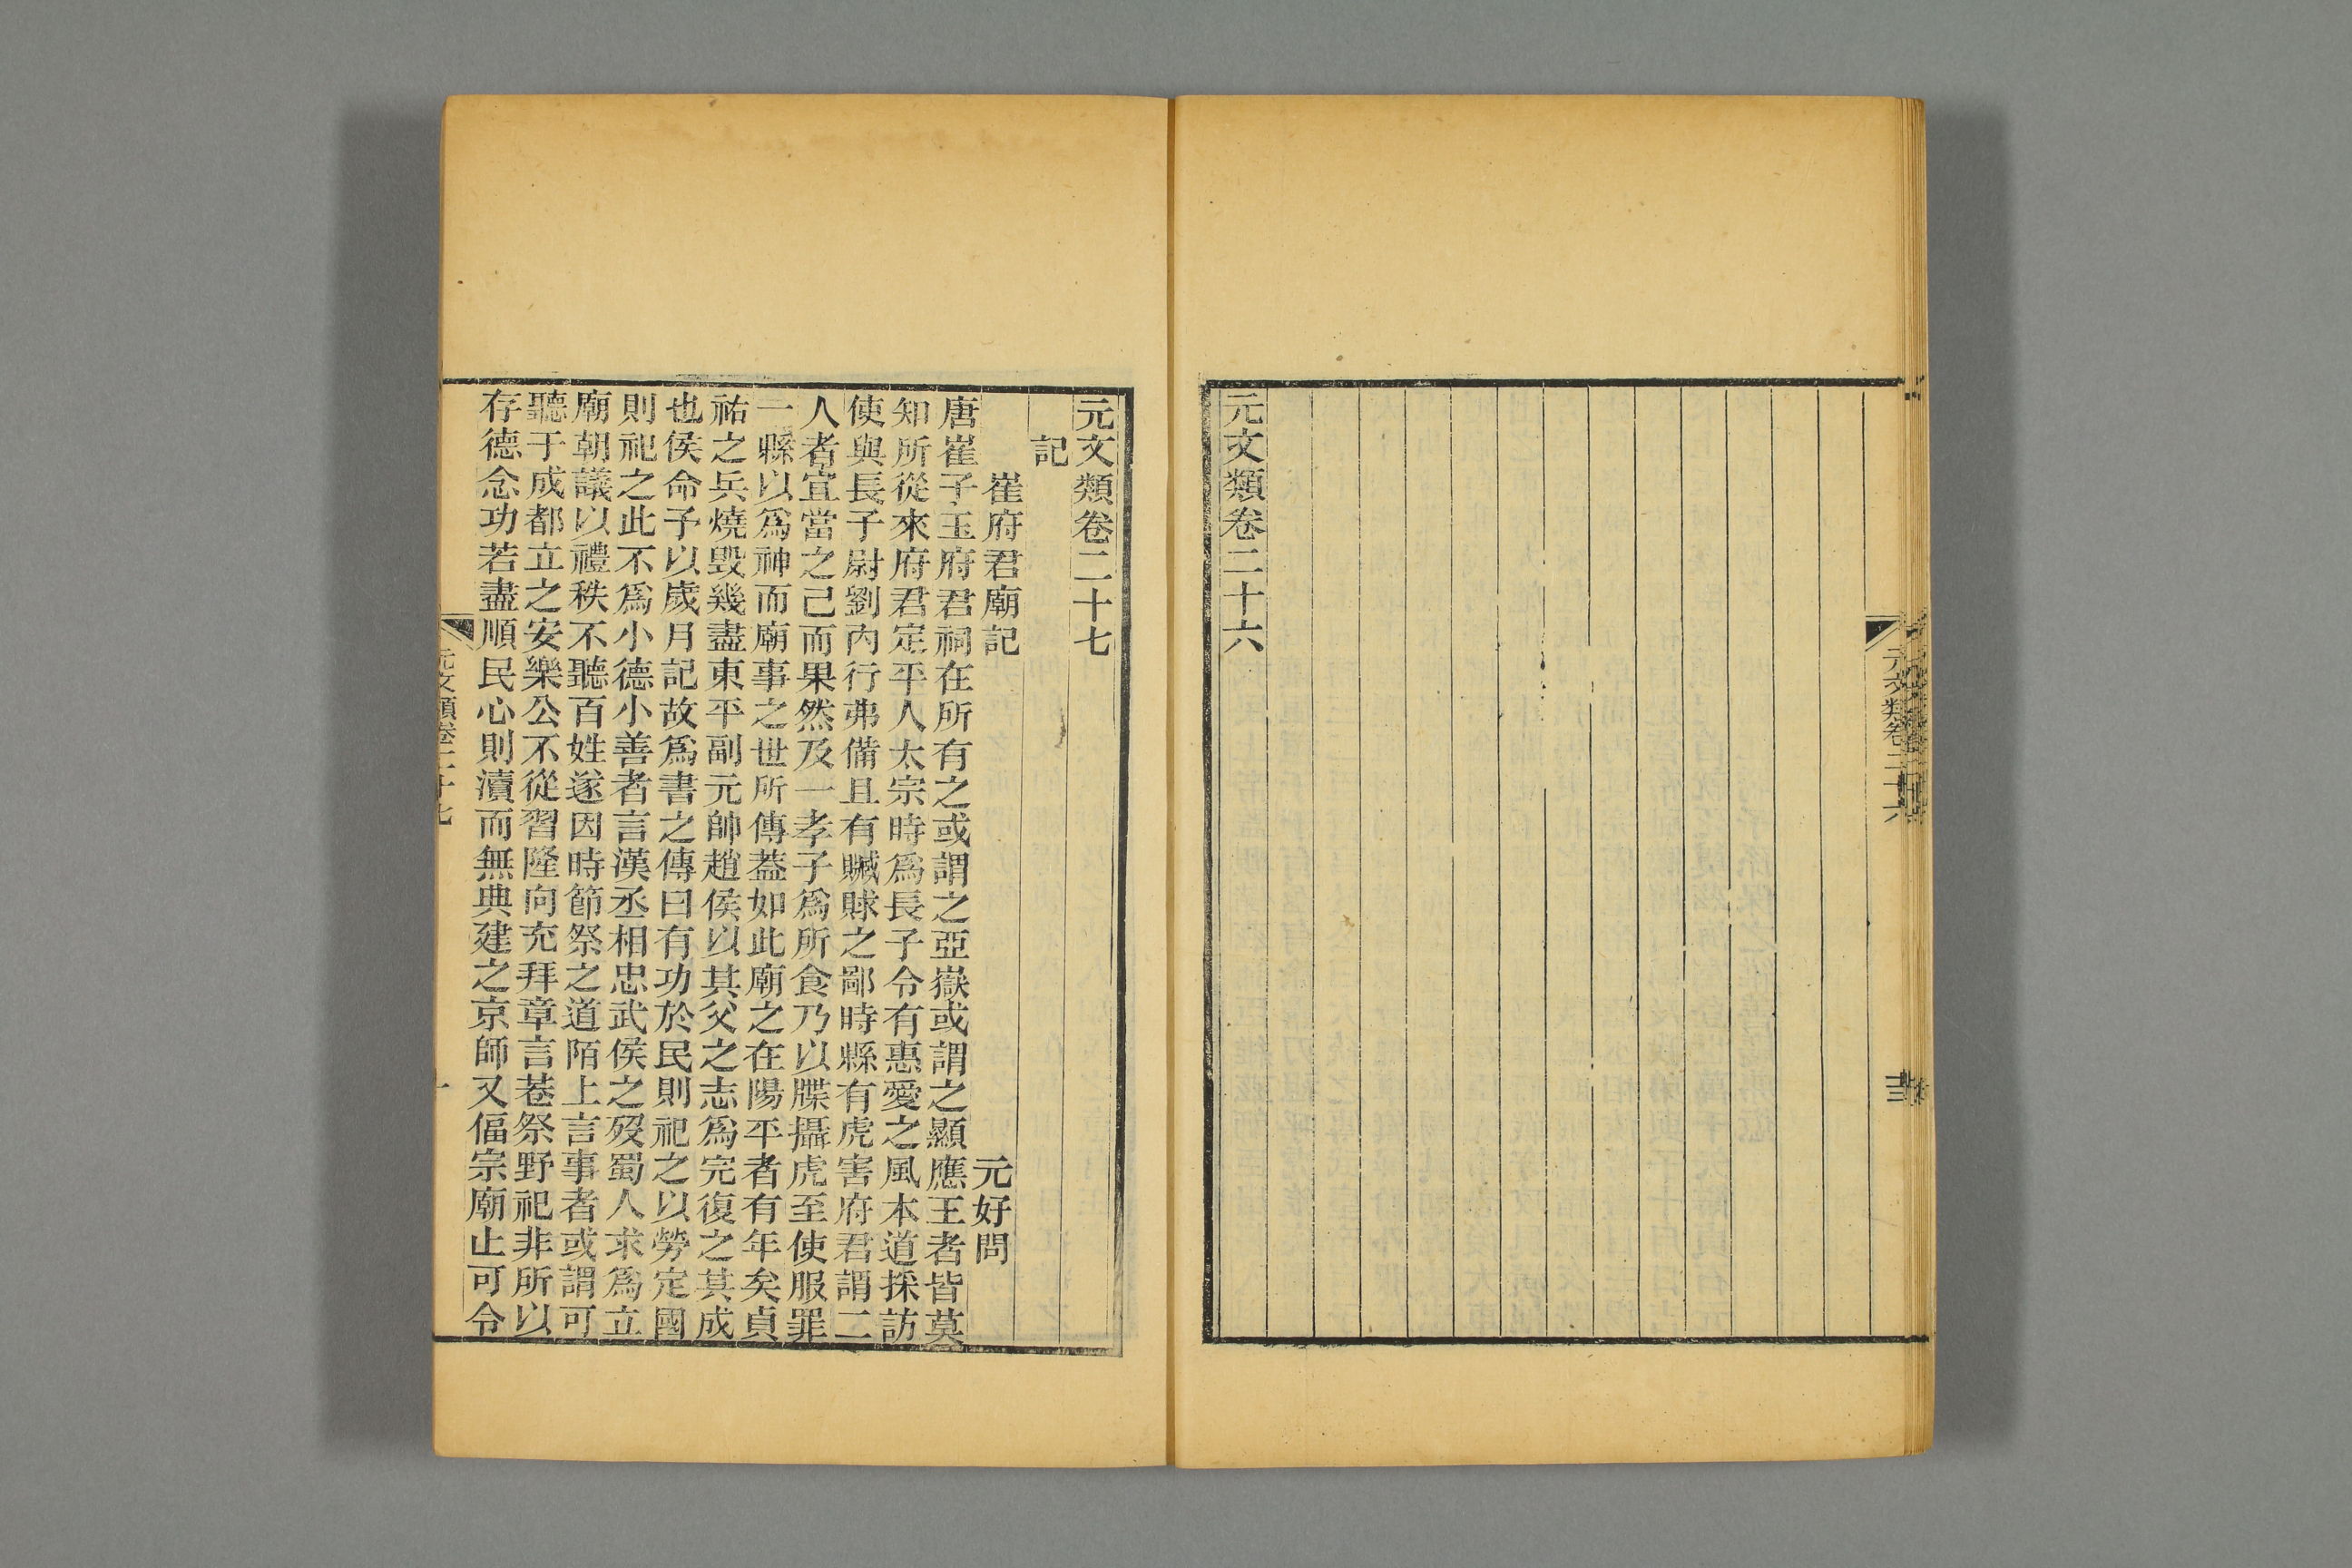 元文類卷二十六
三
元文類卷二十六
元文類卷二十七
記
崔府君廟記
元好問
唐崔子玉府君祠在所有之或謂之亞嶽或謂之顯應王者皆莫
知所從來府君定平人太宗時爲長子令有惠愛之風本道採訪
使與長子尉劉內行弗備且有贓賕之鄙時縣有虎害府君謂二
人者宜當之己而果然及一孝子爲所食乃以牒攝虎至使服罪
一縣以爲神而廟事之世所傳葢如此廟之在陽平者有年矣貞
祐之兵燒毀幾盡東平副元帥趙侯以其父之志爲完復之其成
也侯命予以歲月記故爲書之傳曰有功於民則祀之以勞定國
則祀之此不爲小德小善者言漢丞相忠武侯之歿蜀人求爲立
廟朝議以禮秩不聽百姓遂因時節祭之道陌上言事者或謂可
聽于成都立之安樂公不從習隆向充拜章言巷祭野祀非所以
存德念功若盡順民心則瀆而無典建之京師又偪宗廟止可令
元文類卷二十七
一